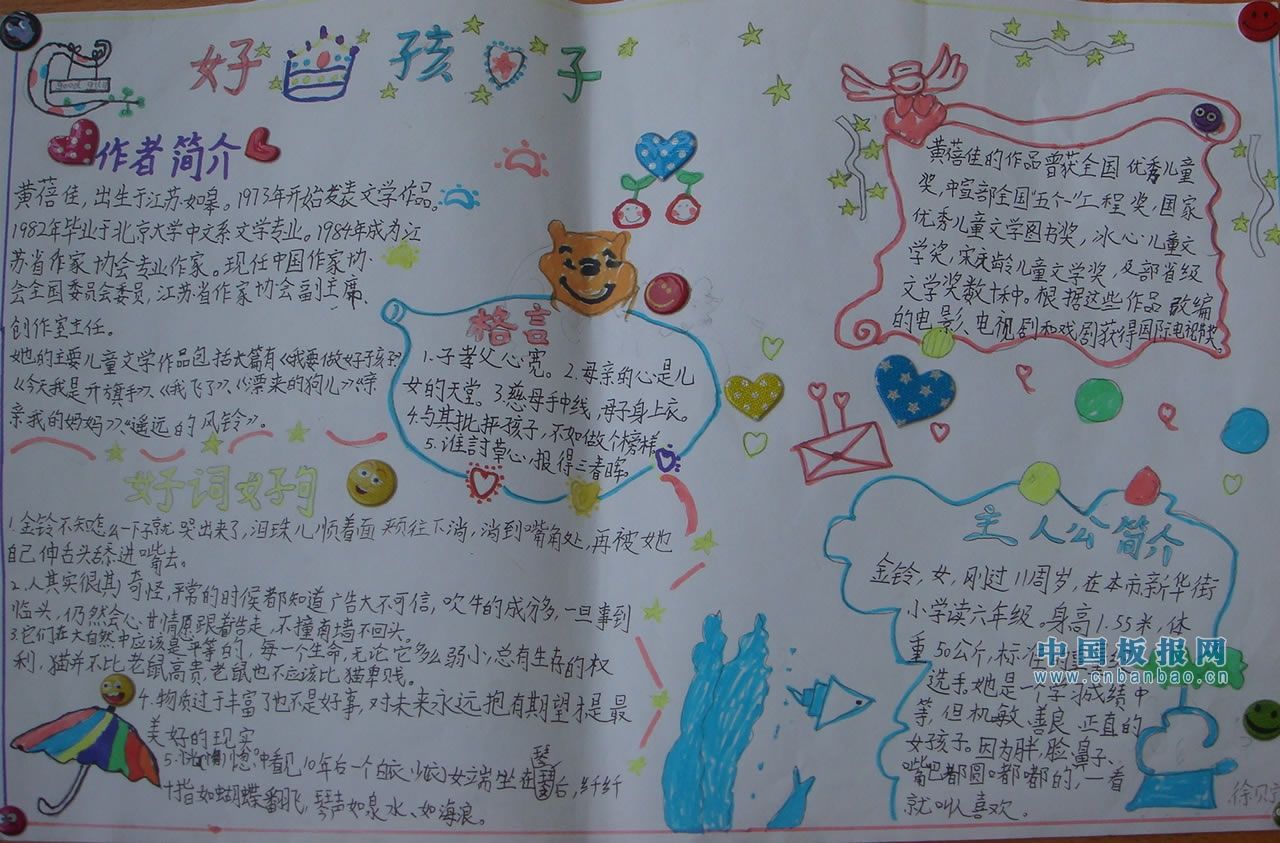 好孩子
作者简介
黄蓓佳,出生于江苏如皋。1973年开始发表文学作品。
1982年毕业于北京大学中文系文学专业。1984年成为江
苏省作家协会专业作家。现任中国作家协
会全国委员会委员,江苏省作家协会副主席、
创作室主任。
她的主要儿童文学作品包括长篇有《我要做好孩子》
《今天我是升旗手》、《我飞了》、《漂来的狗儿》《亲
亲我的妈妈》、《遥远的风铃》。
格言
1.子孝父心宽。2.母亲的心是儿
女的天堂。3.慈母手中线,母子身上衣。
4.与其批评孩子,不如做个榜样。
5.谁討草心,报得三春晖。
黄蓓佳的作品曾获全国优秀儿童
奖,中宣部全国"五个一"工程奖,国家
优秀儿童文学图书奖,冰心儿童文
学奖,宋庆龄儿童文学奖,及部省级
文学奖数十种。根据这些作品改编
的电影、电视剧和戏剧获得国际电视节奖。
好词好句
1.金铃不知怎么一下子就哭出来了,泪珠儿顺着面颊往下淌,淌到嘴角处,再被她
自己伸舌头舔进嘴去。
2.人其实很其奇怪,平常的时候都知道广告大不可信,吹牛的成分多,一旦事到
临头,仍然会心甘情愿跟着告走,不撞南墙不回头。
3.它们在大自然中应该是平等的,每一个生命,无论它多么弱小,总有生存的权
利,猫并不比老鼠高贵,老鼠也不应该比猫卑贱。
4.物质过于丰富了也不是好事,对未来永远抱有期望才是最
美好的现实
5.恍惚中看见10年后一个白衣少女端坐在琴后,纤纤
十指如蝴蝶翻飞,琴声如泉水、如海浪。
主人公简介
金铃,女,刚过11周岁,在本市新华街
小学读六年级。身高1.55米,体
重50公斤,标准的重
选手。她是一个学习成绩中
等,但机敏、善良、正直的
女孩子。因为胖,脸、鼻子、
嘴巴都圆嘟嘟的,一看
就叫人喜欢。
中国板报网
www.cnbanbao.cn